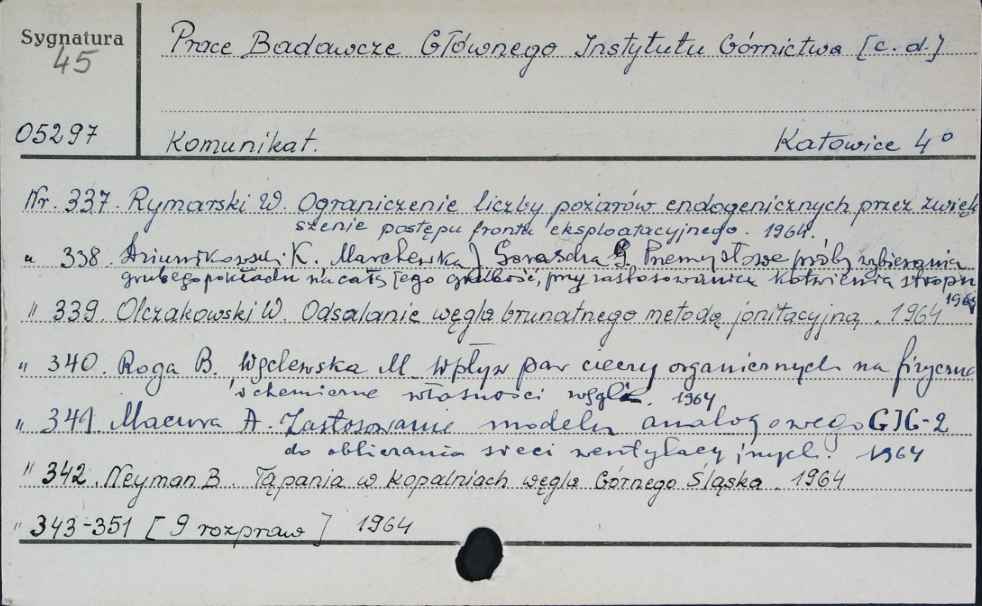 Sygnatura
45
Prace Badawcze Głównego Instytutu Górnictwa [c.d.]
05297
Komunikat. Katowice 4°
Nr. 337. Rymarski W. Ograniczenie liczby pożarów endogenicznych przez zwięk
szenie postępu frontu eksploatacyjnego. 1964.
" 338. K. Marchewka J G. Przemysłowe próby wybierania
grubego pokładu na całą jego grubość, przy zastosowaniu kotwienia stropu
1964
" 339. Olczakowski W. Odsalanie węgla brunatnego metodą jonitacyjną. 1964
" 340. Roga B. Węclewska M. Wpływ par cieczy organicznych na fizyczne
i chemiczne własności węgla. 1964
" 341. Macura A. Zastosowanie modelu analogowego GIG-2
do obliczania sieci wentylacyjnych. 1964
" 342. Neyman B. Tąpania w kopalniach węgla Górnego Śląska. 1964
" 343-351 [9 rozpraw] 1964